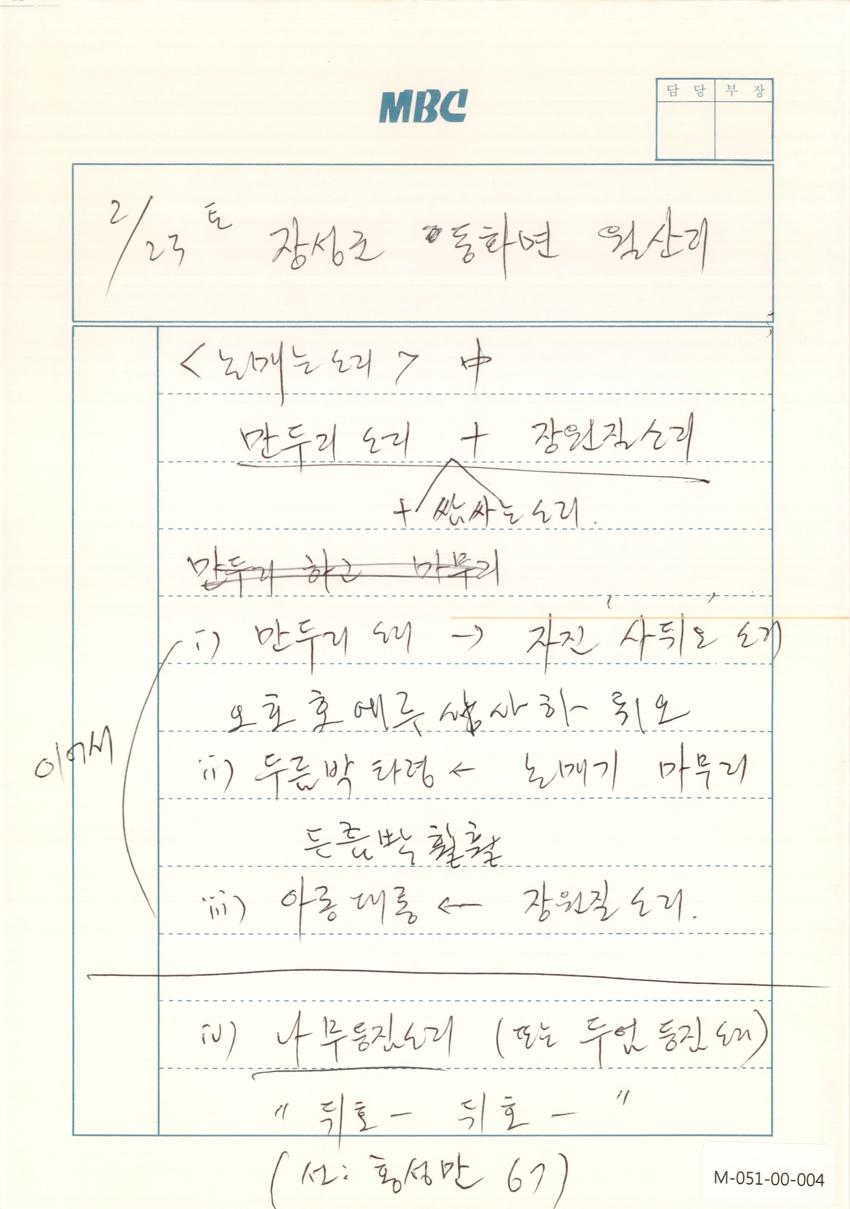 MBC
담 당 부 장
2/23 토 장성군 동화면 월산리
<논매는소리> 中
만두리 소리 + 장원질소리
+ 쌈싸는소리.
만두리 하고 마무리
i) 만두리 소리 → 자진 '사뒤오' 소리
오호호에루 상사하 뒤오
이어서
ii) 두름박 타령 ← 논매기 마무리
든름박 훨훨
iii) 아롱대롱 ← 장원질소리.
iv) 나무등짐소리 (또는 두엄 등짐소리)
" 뒤호 - 뒤호 - "
(선: 황성만 67)
M-051-00-004